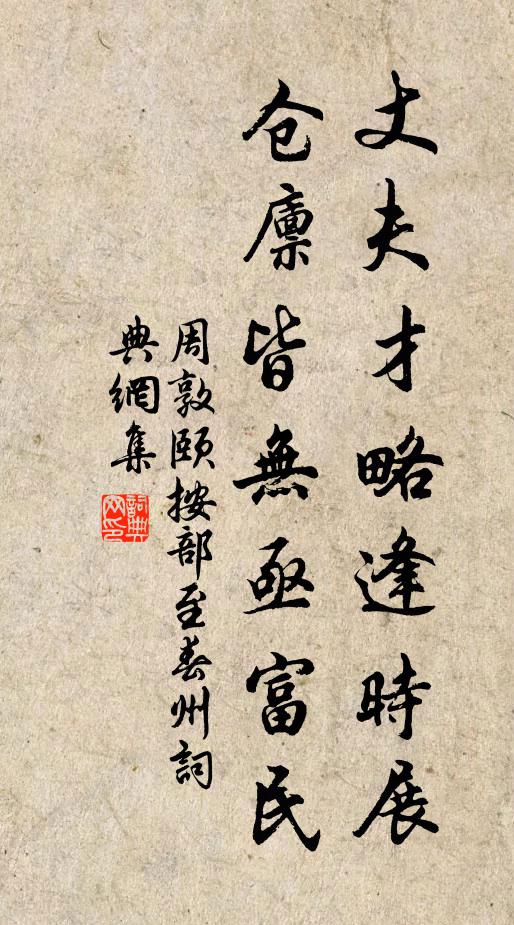 丈夫才略逢時展
仓廪皆無亟富民
周敦颐按部至春州詞
典網集
詞典
网印